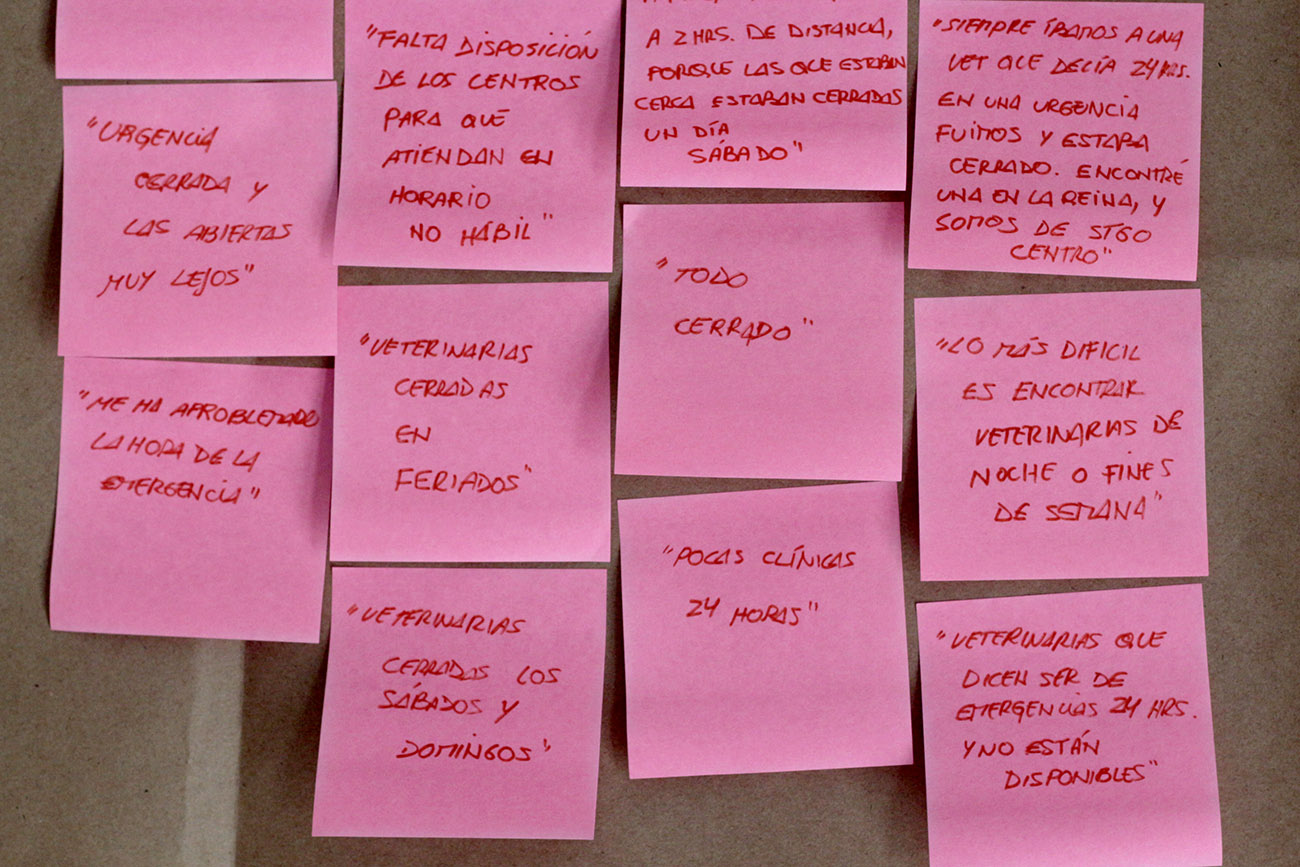 "URGENCIA
CERRADA Y
LAS ABIERTAS
MUY LEJOS"
"ME HA AFROBLEMADO
LA HORA DE LA
EMERGENCIA"
"FALTA DISPOSICIÓN
DE LOS CENTROS
PARA QUE
ATIENDAN EN
HORARIO
NO HÁBIL"
"VETERINARIAS
CERRADAS
EN
FERIADOS"
"VETERINARIAS
CERRADAS LOS
SÁBADOS Y
DOMINGOS"
A 2 HRS. DE DISTANCIA,
PORQUE LAS QUE ESTABAN
CERCA ESTABAN CERRADAS
UN DÍA
SÁBADO"
"TODO
CERRADO"
"POCAS CLÍNICAS
24 HORAS"
"SIEMPRE ÍBAMOS A UNA
VET QUE DECÍA 24 HRS.
EN UNA URGENCIA
FUIMOS Y ESTABA
CERRADO. ENCONTRÉ
UNA EN LA REINA, Y
SOMOS DE STGO
CENTRO"
"LO MÁS DIFICIL
ES ENCONTRAR
VETERINARIAS DE
NOCHE O FINES
DE SEMANA"
"VETERINARIAS QUE
DICEN SER DE
EMERGENCIAS 24 HRS.
Y NO ESTÁN
DISPONIBLES"